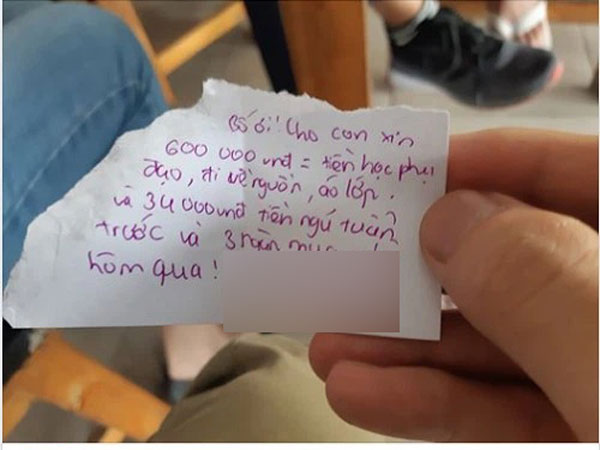 Bố ơi! Cho con xin
600 000 vnđ = tiền học phụ
đạo, đi về nguồn, áo lớp.
và 34 000 vnđ tiền ngủ tuần
trước và 3 hôm
hôm qua!